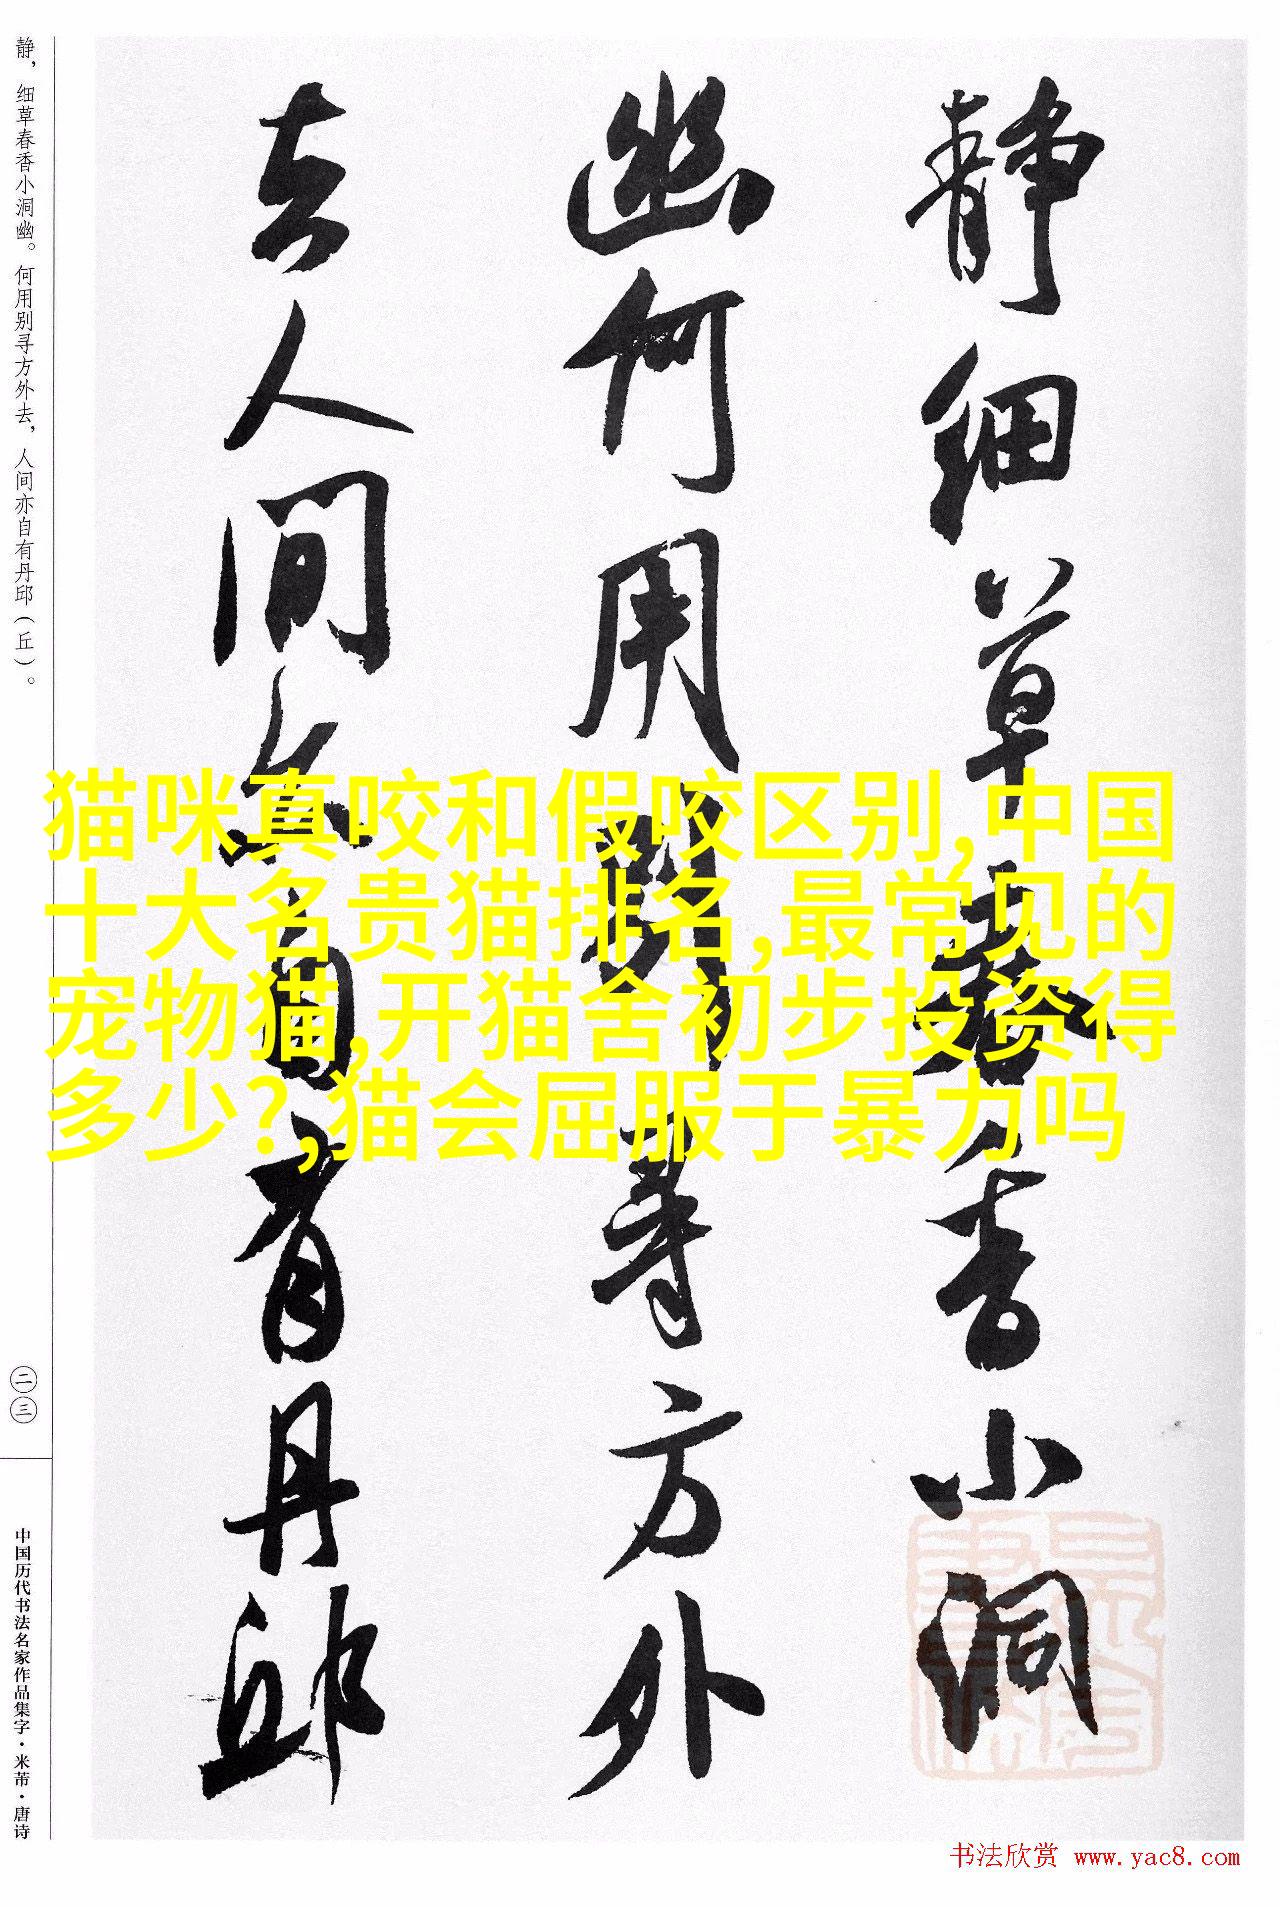 静，细草春香小洞幽。何用别寻方外去，人间亦自有丹邱（丘）。
二三
中国历代书法名家作品集字·米芾·唐诗
静细草春香小洞
幽何用别寻方外
去人间亦自有丹邱
猫咪真咬和假咬区别,中国
十大名贵猫排名,最常见的
宠物猫,开猫舍初步投资得
多少?,猫会屈服于暴力吗
书法欣赏 www.yac8.com